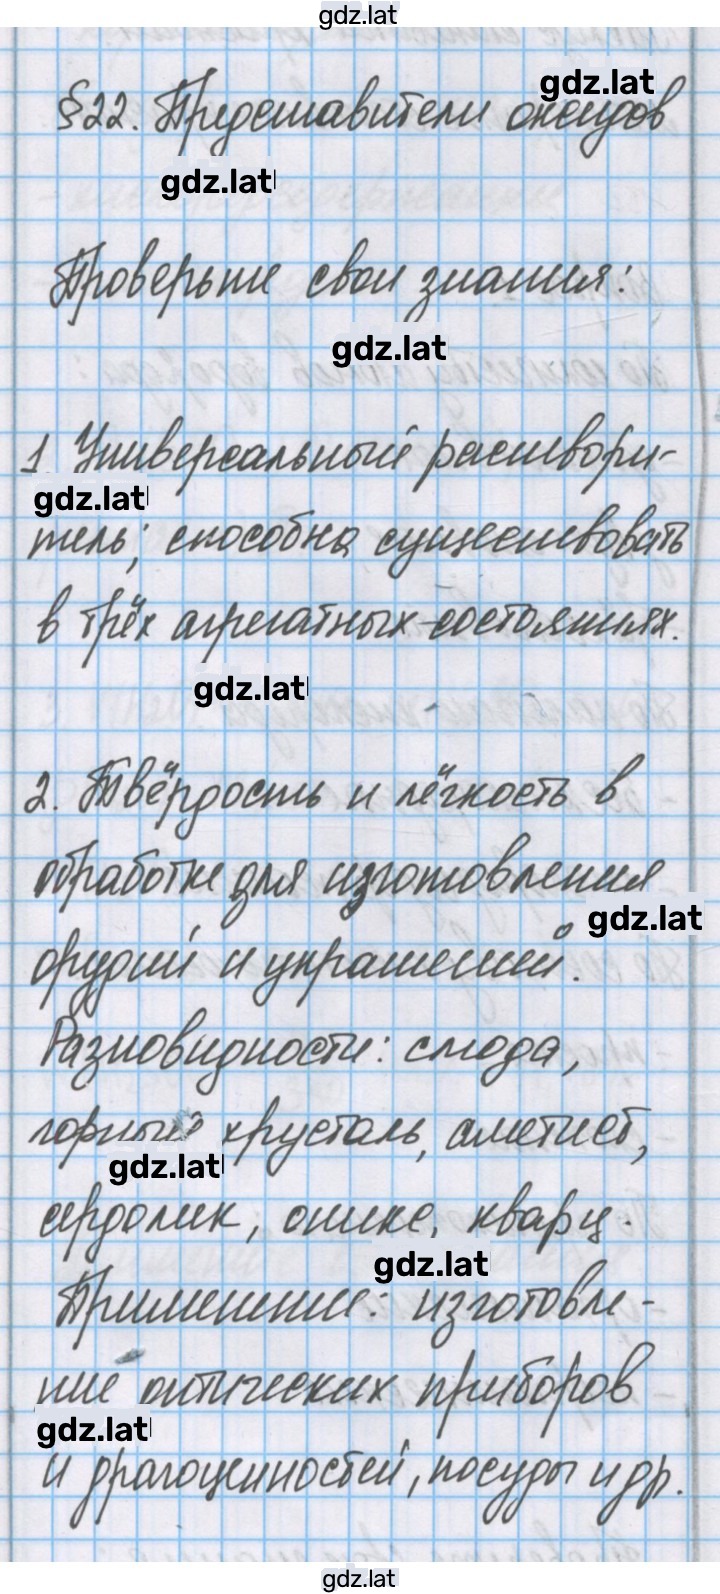 gdz.lat
§22. Представители оксидов
gdz.lat
gdz.lat
Проверьте свои знания:
gdz.lat
1. Универсальный раствори-
gdz.lat
тель; способна существовать
в трёх агрегатных состояниях.
gdz.lat
2. Твёрдость и лёгкость в
обработке для изготовления
gdz.lat
орудий и украшений.
Разновидности: слюда,
горный хрусталь, аметист,
gdz.lat
сердолик, оникс, кварц.
gdz.lat
Применение: изготовле-
ние оптических приборов
gdz.lat
и драгоценностей, посуды и др.
gdz.lat